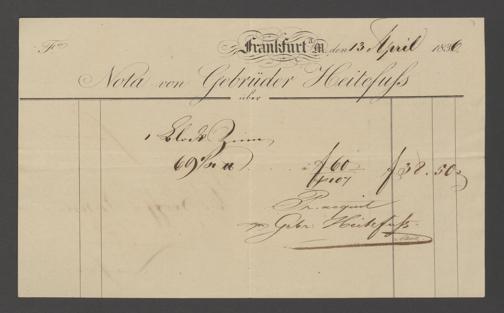 Frankfurt a/M den 13 April 1836
Nota von Gebrüder Heitefuss
über
1 Block Zinn
f 60
f 38. 50
Pr. acquit
Gebr. Heitefuss